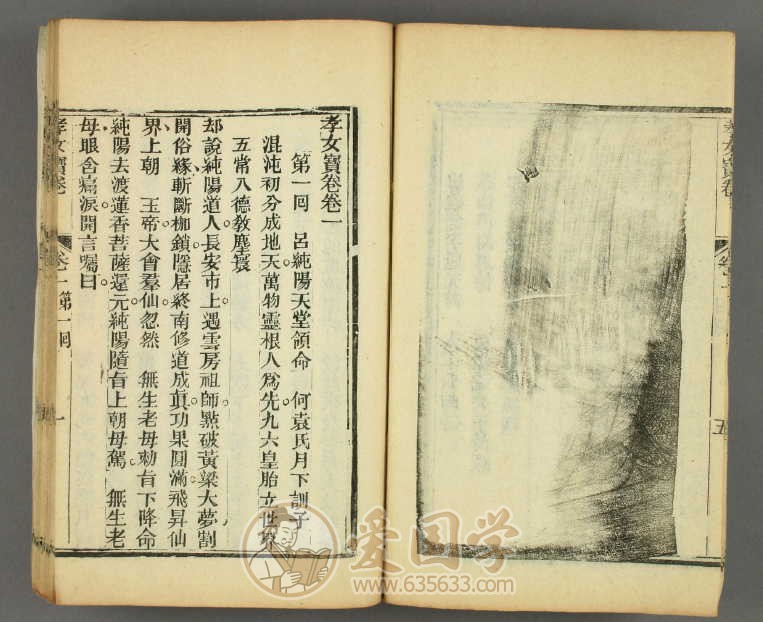 孝女寶卷卷一
第一囘　呂純陽天堂領命　何袁氏月下訓子
混沌初分成地天萬物靈根人為先九六皇胎立世界
五常八德教塵寰
却說純陽道人長安市上遇雲房祖師點破黃粱大夢割
開俗緣斬斷枷鎖隱居終南修道成真功果圓滿飛昇仙
界上朝　玉帝大會羣仙忽然　無生老母勅旨下降命
純陽去渡蓮香菩薩還元純陽隨旨上朝母駕　無生老
母眼含痛淚開言囑曰
孝女寶卷　卷一第一囘　一
孝女寶卷
五
爱国学
www.635633.com